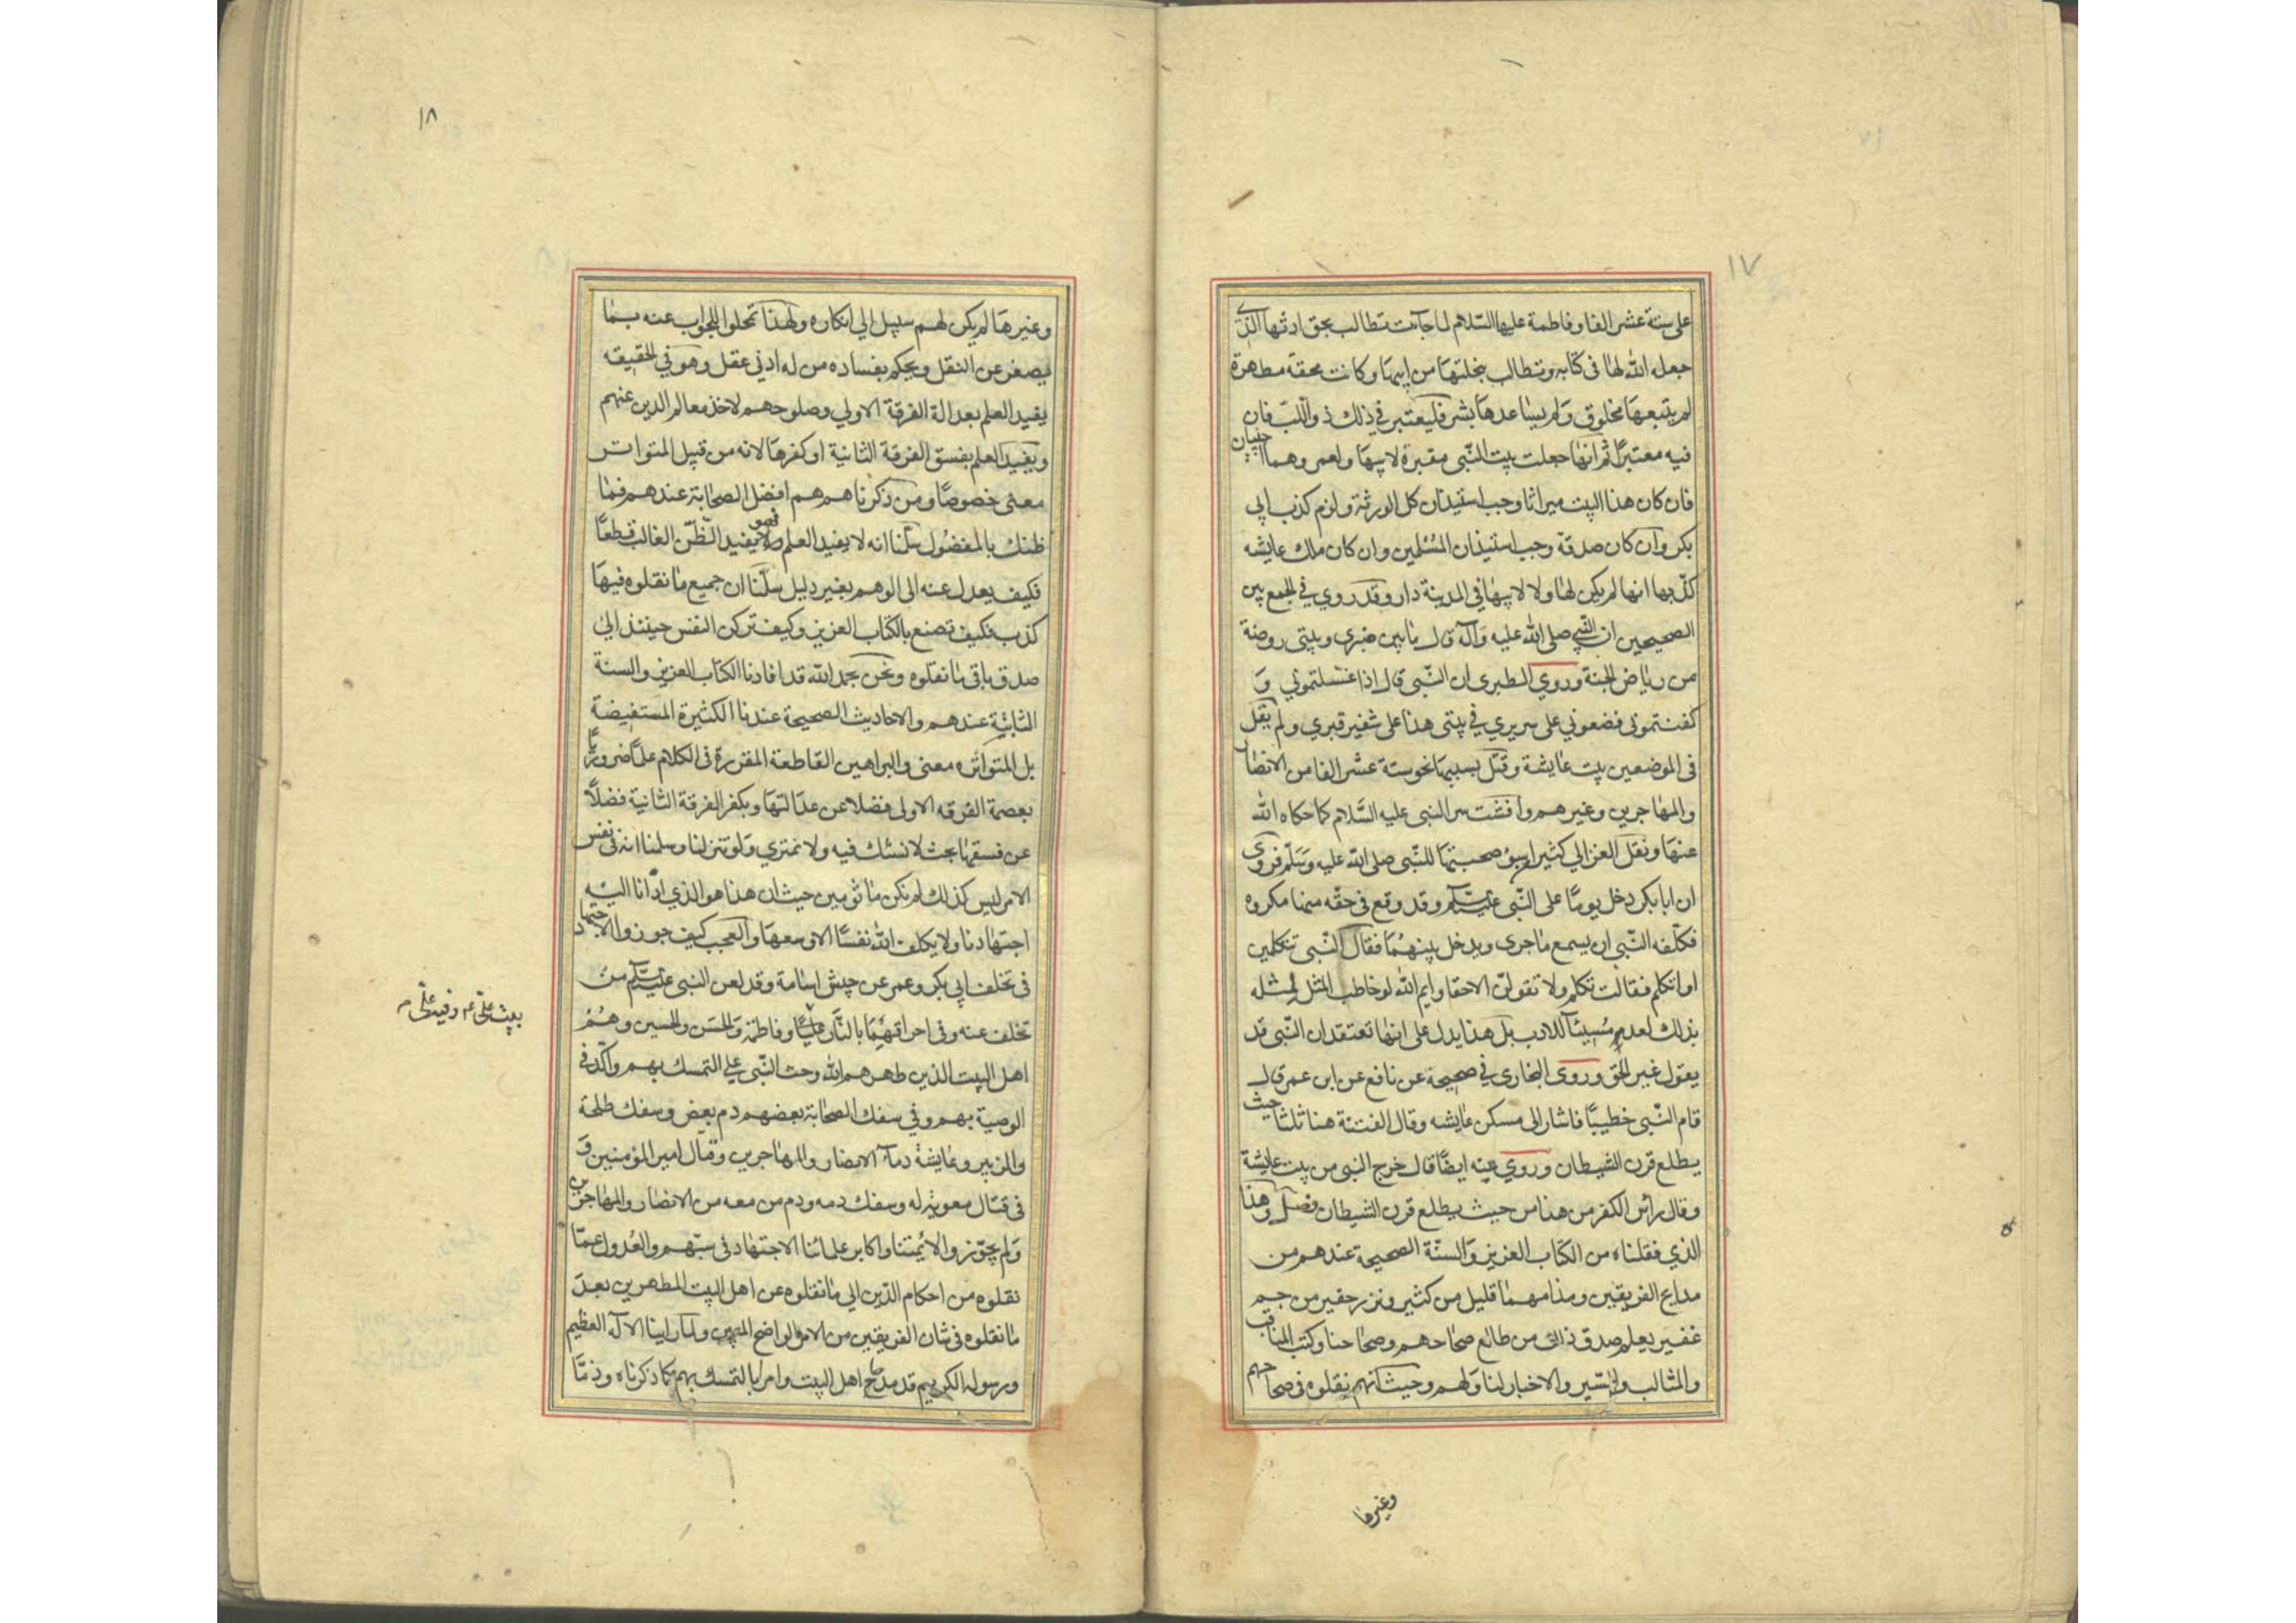 ١٧
على ستة عشر الفا وفاطمة عليها السلام لما جاءت تطالب بحق ارثها الذي
جعله الله لها فى كتابه وتطالب بنحلتها من ابيها وكانت محقة مطهرة
لم يتبعها مخلوق ولم يساعدها بشر فليعتبر في ذلك ذو اللب فان
فيه معتبرًا ثم انها جعلت بيت النبى مقبرة لابيها ولعمر وهما اجنبيان
فان كان هذا البيت ميراثا وجب استيذان كل الورثة ولزم كذب ابي
بكر وان كان صدقة وجب استيذان المسلمين وان كان ملك عايشه
كذبها انها لم يكن لها ولا لابيها في المدينة دار وقد روي في الجمع بين
الصحيحين ان النبي صلى الله عليه وآله قال ما بين منبري وبيتى روضة
من رياض الجنة وروي الطبرى ان النبى قال اذا غسلتموني و
كفنتمونى فضعوني على سريري في بيتى هذا على شفير قبري ولم يقل
فى الموضعين بيت عايشة وقتل بسببها نحو ستة عشر الفا من الانصار
والمهاجرين وغيرهم وافشت سر النبى عليه السلام كما حكاه الله
عنها ونقل الغزالي كثيرا من سوء صحبتها للنبى صلى الله عليه وسلم فروى
ان ابا بكر دخل يومًا على النبى عليه السلام وقد وقع فى حقه منها مكروه
فكلفه النبي ان يسمع ماجرى ويدخل بينهما فقال النبى تتكلمين
او اتكلم فقالت تكلم ولا تقولن الا حقا وايم الله لو خاطب المثل لمثله
بذلك لعد مسيئا للادب بل هذا يدل على انها تعتقد ان النبى قد
يقول غير الحق وروى البخارى في صحيحه عن نافع عن ابن عمر قال
قام النبى خطيبًا فاشار الى مسكن عايشه وقال الفتنة هنا ثلثا حيث
يطلع قرن الشيطان وروي عنه ايضًا قال خرج النبى من بيت عايشة
وقال رأس الكفر من هنا من حيث يطلع قرن الشيطان فصل وهذا
الذي نقلناه من الكتاب العزيز والسنة الصحيحة عندهم من
مدايح الفريقين ومذامهما قليل من كثير ونزر حقير من جم
غفير يعلم صدق ذلك من طالع صحاحهم وصحاحنا وكتب المناقب
والمثالب والسير والاخبار لنا ولهم وحيث انهم نقلوه فى صحاحهم
وغيرها
١٨
وغيرها لم يكن لهم سبيل الي انكاره ولهذا تمحلوا للجواب عنه بما
يصغر عن النقل ويحكم بفساده من له ادنى عقل وهو في الحقيقه
يفيد العلم بعدالة الفرقة الاولي وصلوحهم لاخذ معالم الدين عنهم
ويفيد العلم بفسق الفرقة الثانية او كفرها لانه من قبيل المتواتر
معنى خصوصًا ومن ذكرناهم هم افضل الصحابة عندهم فما
ظنك بالمفضول سلمنا انه لا يفيد العلم فهو يفيد الظن الغالب قطعًا
فكيف يعدل عنه الى الوهم بغير دليل سلمنا ان جميع ما نقلوه فيها
كذب فكيف تصنع بالكتاب العزيز وكيف تركن النفس حينئذ الى
صدق باقى ما نقلوه ونحن بحمد الله قد افادنا الكتاب العزيز والسنة
الثابتة عندهم والاحاديث الصحيحة عندنا الكثيرة المستفيضة
بل المتواتره معنى والبراهين القاطعة المقررة فى الكلام علمًا ضروريًا
بعصمة الفرقه الاولى فضلا عن عدالتها وبكفر الفرقة الثانية فضلًا
عن فسقها بحث لا نشك فيه ولا نمتري ولو تنزلنا وسلمنا انه فى نفس
الامر ليس كذلك لم نكن ماثومين حيث ان هذا هو الذي ادانا اليه
اجتهادنا ولا يكلف الله نفسًا الا وسعها والعجب كيف جوزوا الاجتهاد
فى تخلف ابي بكر وعمر عن جيش اسامة وقد لعن النبى عليه السلام من
تخلف عنه وفى احراقهما بالنار عليًا وفاطمة والحسن والحسين وهم
اهل البيت الذين طهرهم الله وحث النبى علي التمسك بهم واكد في
الوصية بهم وفي سفك الصحابة بعضهم دم بعض وسفك طلحة
والزبير وعايشة دماء الانصار والمهاجرين وقتال امير المؤمنين و
فى قتال معوية له وسفك دمه ودم من معه من الانصار والمهاجرين
ولم يجوزوا لائمتنا واكابر علمائنا الاجتهاد فى سبهم والعدول عما
نقلوه من احكام الدين الي ما نقلوه عن اهل البيت المطهرين بعد
ما نقلوه فى شان الفريقين من الامر الواضح المبين ولما راينا الاله العظيم
ورسوله الكريم قد مدحا اهل البيت وامرا بالتمسك بهم كما ذكرناه وذما